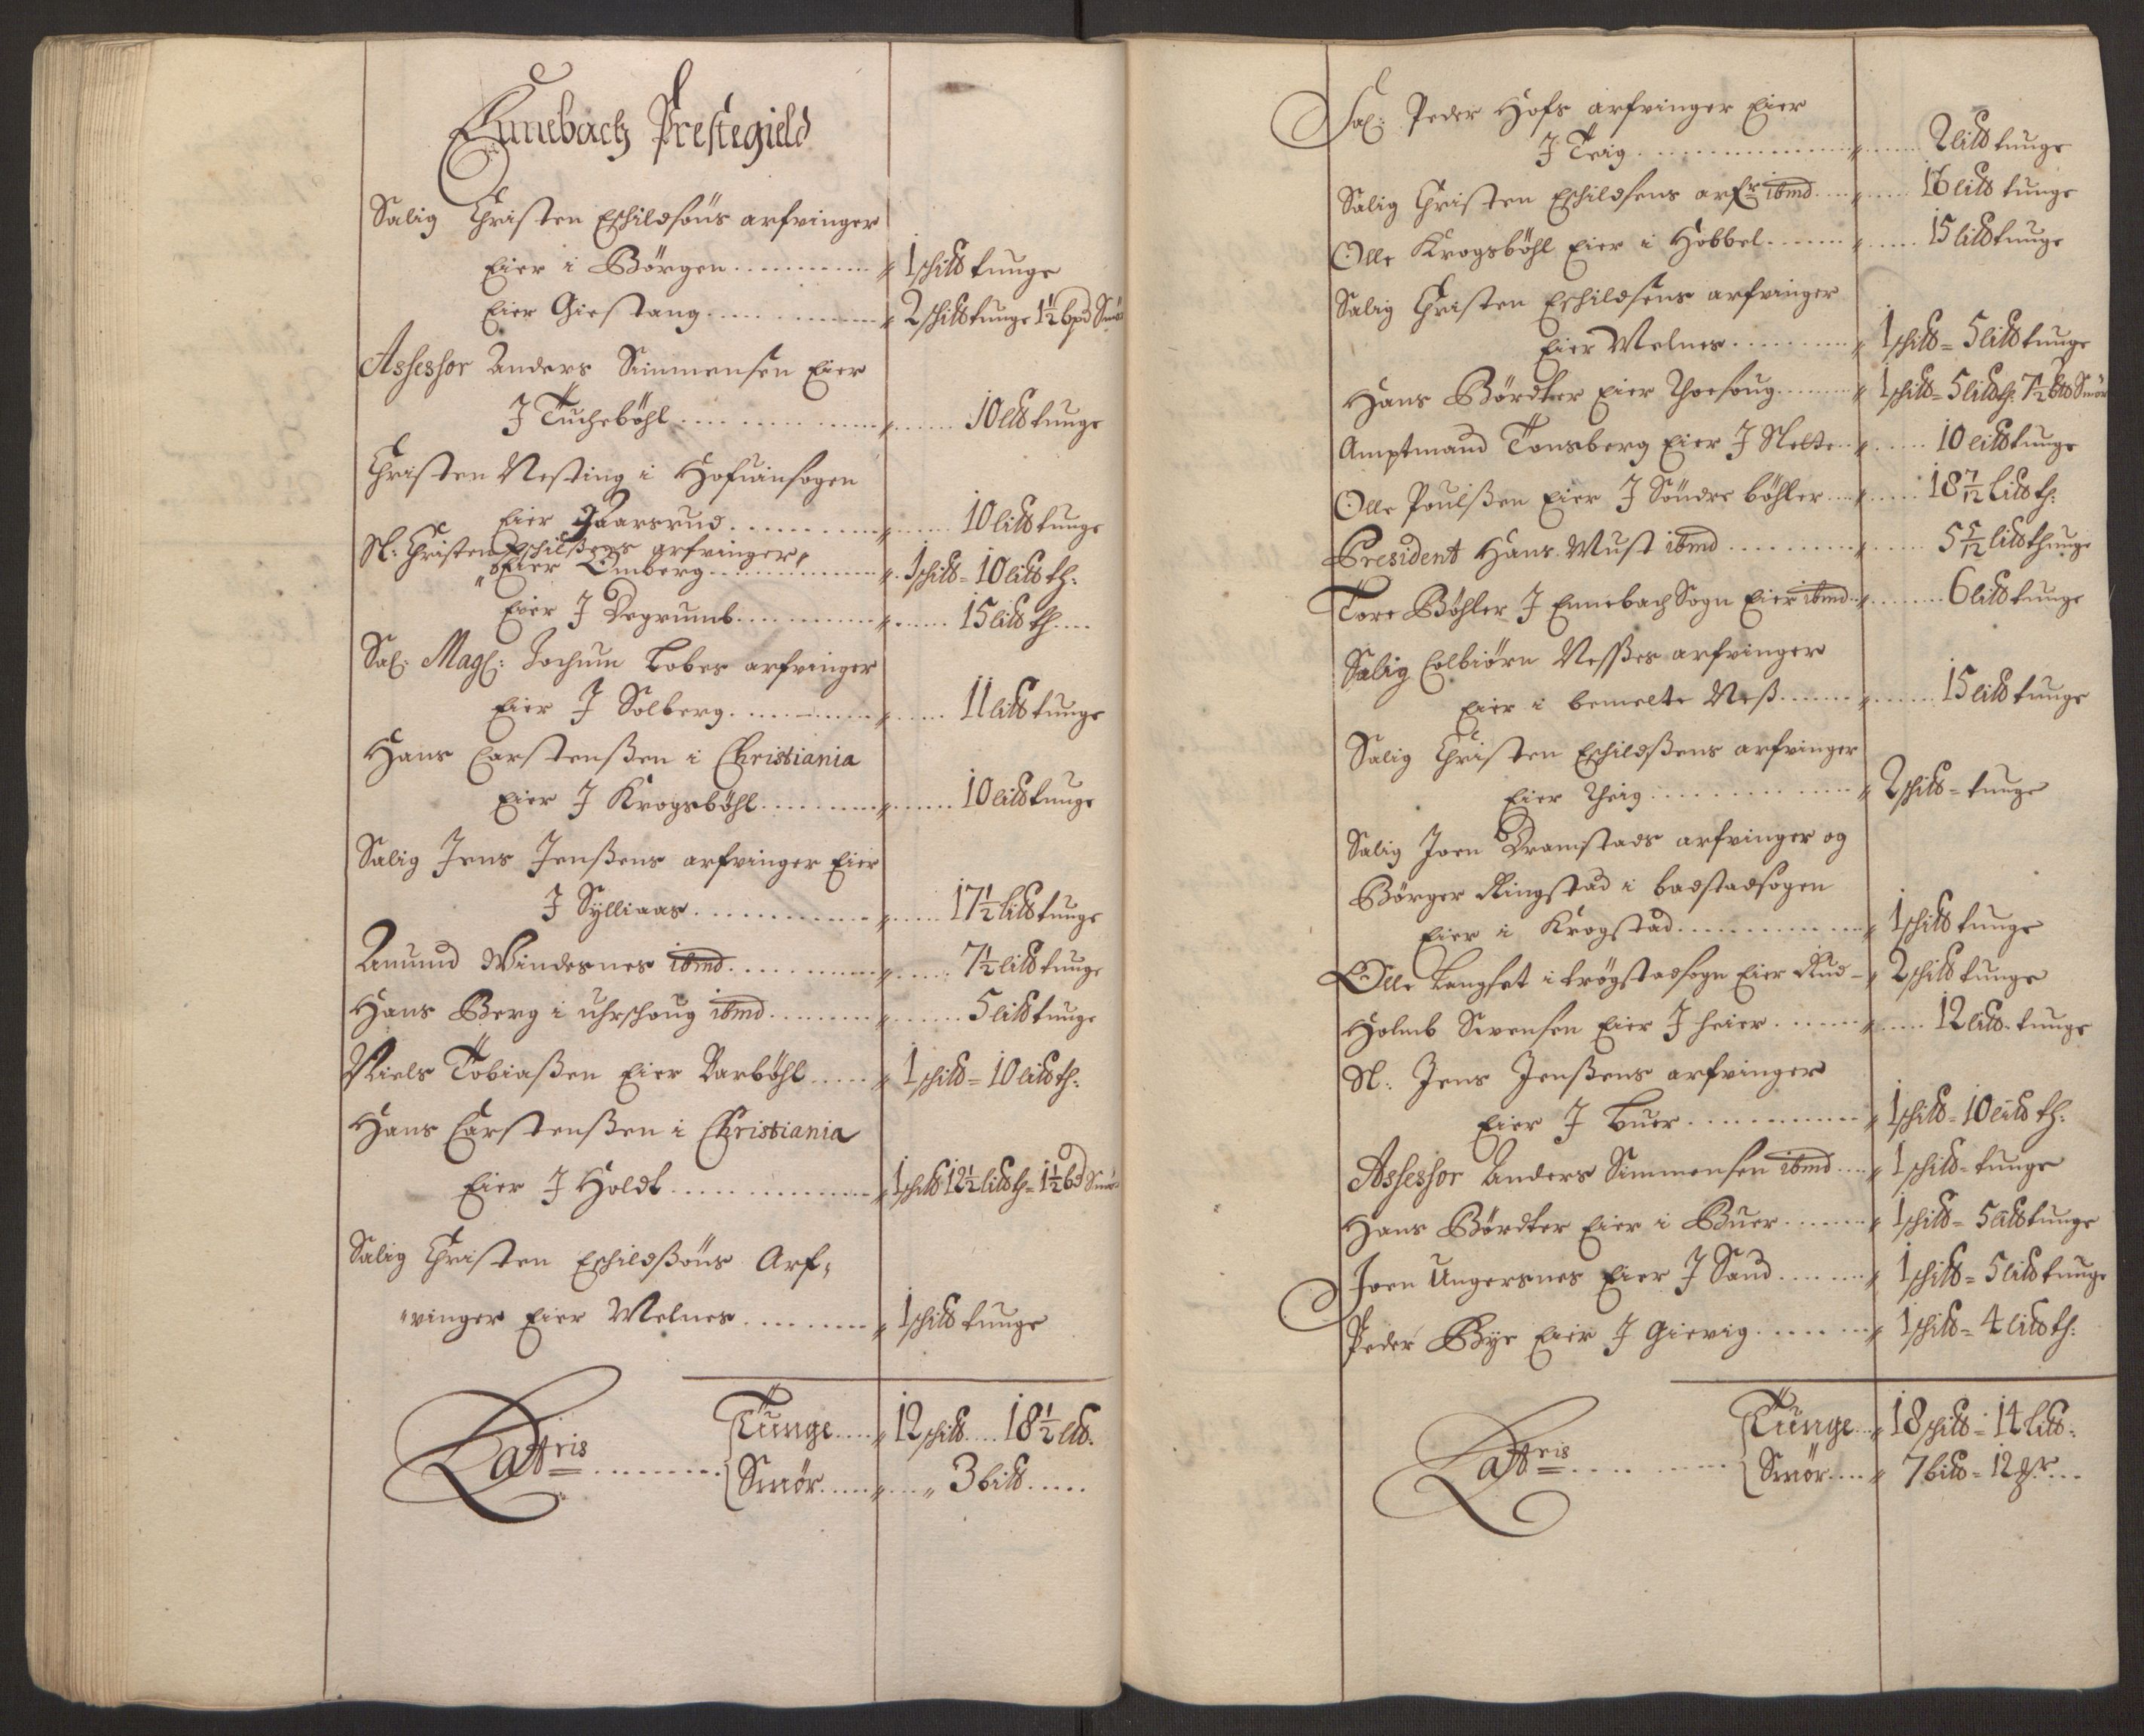 Ennebach Prestegield
Salig Christen Eschildsöns arfvinger
Eier i Börgen ........... " 1 schitt tunge
Eier Giestang ........... " 2 schitt tunge 1½ bpd Smör
Assessor Anders Simmensen Eier
J Tucheböhl ........... " ...... 10 litt tunge
Christen Nesting i Hofvinsogen
Eier Gaarsrud ........... " ...... 10 litt tunge
Sl: Christen Eschilßens arfvinger,
Eier Omberg ........... " 1 schitt = 10 litt th:
Eier J Degrumb ........... " ...... 15 litt th ....
Sal: Mag: Jochum Lobes arfvinger
Eier J Solberg ........... " ...... 11 litt tunge
Hans Carstenßen i Christiania
Eier J Krogsböhl ........... " ...... 10 litt tunge
Salig Jens Jenßens arfvinger Eier
J Sylliaas ........... " ...... 17½ litt tunge
Amund Windesnes ibmd ........... " ...... 7½ litt tunge
Hans Berg i uhrschoug ibmd ......... " ...... 5 litt tunge
Niels Tobiaßen Eier Barböhl ..... " 1 schitt = 10 litt th:
Hans Carstenßen i Christiania
Eier J Holdt ........... " 1 schitt 12½ litt th = 1½ bd Smör
Salig Christen Eschildßöns Arf,
"vinger Eier Melnes ......... " 1 schitt tunge
Lattris ......... Tunge .... " 12 schitt .... 18½ litt.
Smör ..... " ... " 3 bitt .....
Sal: Peder Hofs arfvinger Eier
J Teig ........... " ...... 2 litt tunge
Salig Christen Eschildsens arfr ibmd .... " ..... 16 litt tunge
Olle Krogsböhl Eier i Hobbel ....... " ..... 15 litt tunge
Salig Christen Eschildsens arfvinger
Eier Melnes .......... " 1 schitt = 5 litt tunge
Hans Bördker Eier Thoesoug ........ " 1 schitt = 5 litt th: 7½ bitt Smör
Amptmand Tonsberg Eier J Slette .. " ..... 10 litt tunge
Olle Poulßen Eier J Söndre böhler .... " ..... 18 7/12 litt th:
President Hans Must ibmd ........... " ..... 5 5/12 litt thunge
Tore Böhler J Ennebach Sogn Eier ibmd .. " ....... 6 litt tunge
Salig Colbiörn Nessßes arfvinger
Eier i bemelte Neß ....... " ...... 15 litt tunge
Salig Christen Eschildßens arfvinger
Eier Theig ........... " 2 schitt = tunge
Salig Joen Dramstads arfvinger og
Börger Ringstad i badstadsogen
Eier i Krogstad ........... " 1 schitt tunge
Olle Langset i trögstadsogn Eier Rud - " 2 schitt tunge
Holmb Svensen Eier J heier ....... " ..... 12 litt = tunge
Sl: Jens Jenßens arfvinger
Eier J Buer ........... " 1 schitt = 10 litt th:
Assessor Anders Simmensen ibmd .... " 1 schitt = tunge
Hans Bördker Eier i Buer ........ " 1 schitt = 5 litt tunge
Joen Ungersnes Eier J Sand ........ " 1 schitt = 5 litt tunge
Peder Bye Eier J Gievig ........ " 1 schitt = 4 litt th:
Lattris ......... Tunge ... " 18 schitt = 14 litt:
Smör .... " 7 bitt = 12 mr ...